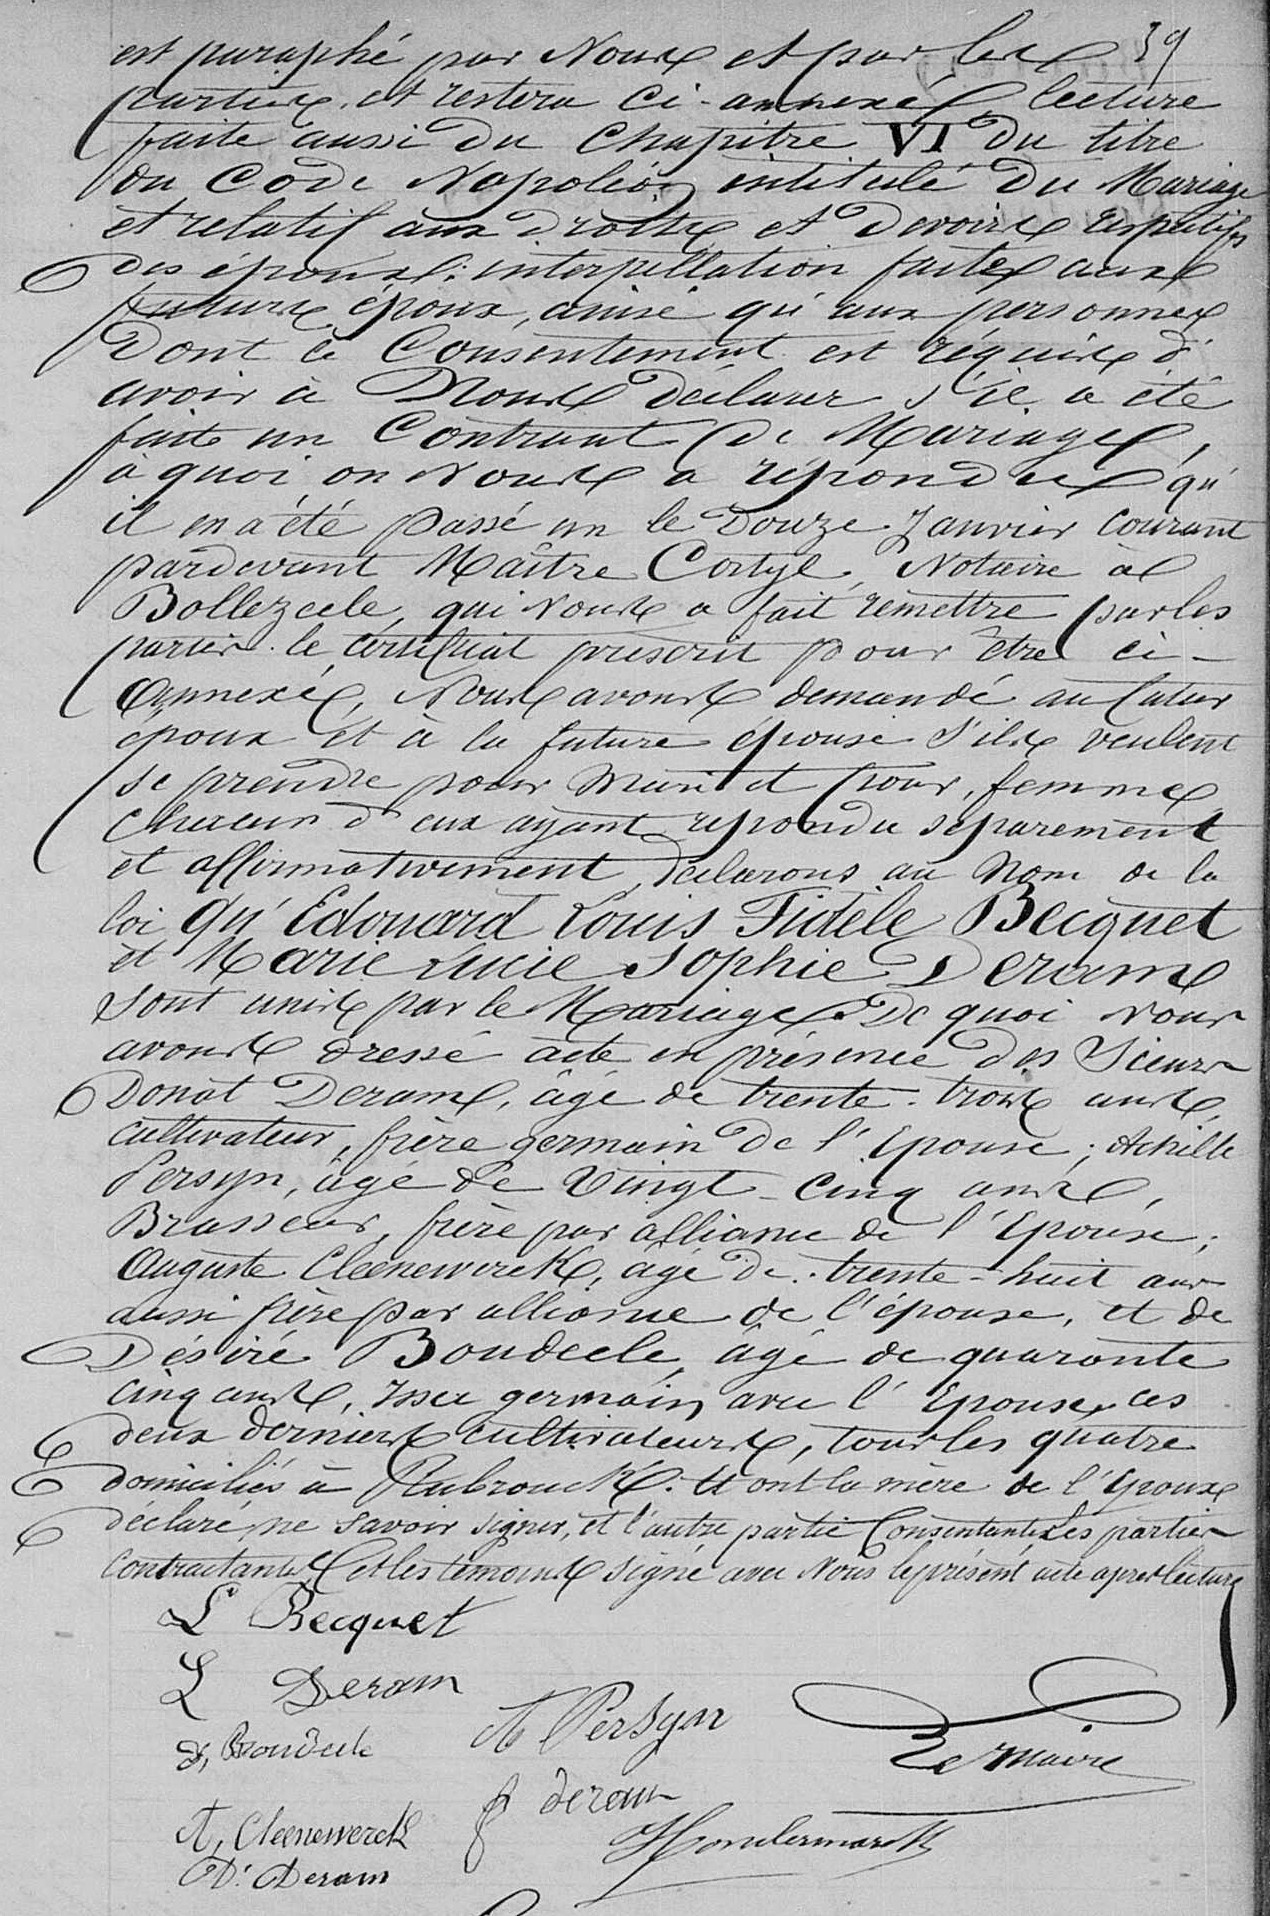 est paraphé par Nous et par les 39
parties et restera ci-annexé, lecture
faite aussi du Chapitre VI du titre
du Code Napoléon intitulé Du Mariage
et relatif aux droits et Devoirs respectifs
des époux ; interpellation faite aux
futurs époux, ainsi qu'aux personnes
Dont le Consentement est requis d'
avoir à Nous déclarer s'il a été
fait un Contrat de Mariage,
à quoi on Nous a répondu qu'
il en a été passé un le Douze Janvier courant
pardevant Maître Cortyl, Notaire à
Bollezeele, qui Nous a fait remettre par les
parties le certificat prescrit pour être ci-
annexé, Nous avons demandé au futur
époux et à la future épouse s'ils veulent
se prendre pour Mari et pour femme
chacun d'eux ayant répondu séparement
et affirmativement, déclarons au Nom de la
loi qu'Edouard Louis Fidèle Becquet
et Marie Lucie Sophie Deram
sont unis par le Mariage. De quoi Nous
avons dressé acte en présence des Sieurs
Donat Deram, âgé de trente-trois ans,
cultivateur, frère germain de l'Epouse ; Achille
Persyn, âgé de Vingt-cinq ans,
Brasseur, frère par alliance de l'Epouse ;
Auguste Cleenewerck, âgé de trente-huit ans
aussi frère par alliance de l'épouse, et de
Désiré Boudeele, âgé de quarante
cinq ans, Issu germain avec l'Epouse, ces
deux derniers cultivateurs, tous les quatre
domiciliés à Rubrouck. Et ont la mère de l'époux
déclaré ne savoir signer, et l'autre partie Consentante, Les parties
contractantes et les témoins signé avec Nous le présent acte après lecture
L Becquet
L Deram
A Persyn
D, Boudeele
Dermaire
deram
A, Cleenewerck
D. Deram